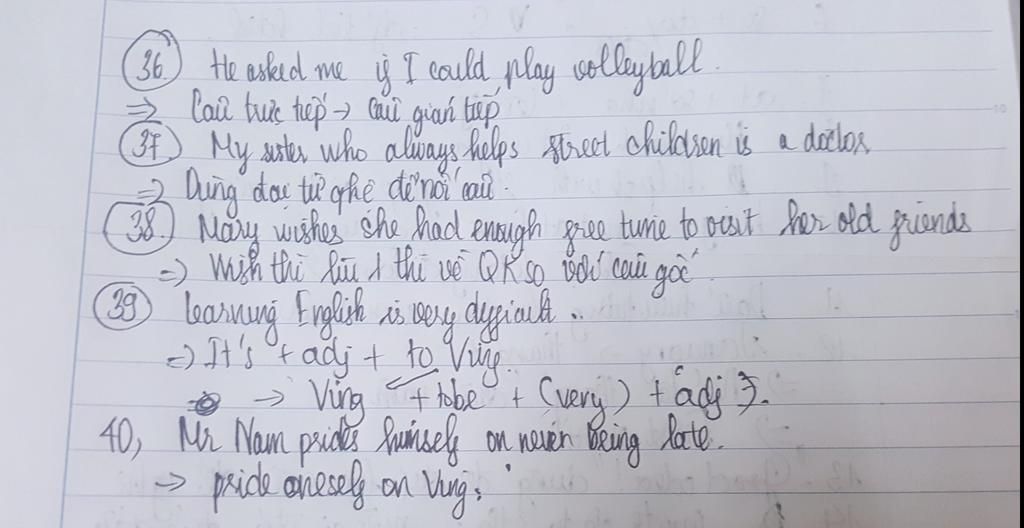 36. He asked me if I could play volleyball.
=> Câu trực tiếp → câu gián tiếp
37 My sister who always helps street children is a doctor.
=> Dùng đại từ qhệ để nối câu.
38. Mary wishes she had enough free time to visit her old friends
=> Wish thì lùi 1 thì về QK so với câu gốc
39 Learning English is very difficult.
=> It's + adj + to Ving.
→ Ving + tobe + (very) + adj }.
40, Mr Nam prides himself on never being late.
→ pride oneself on Ving.